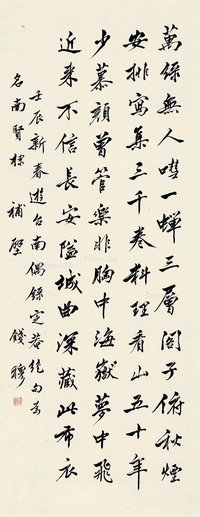 萬綠無人嘒一蟬三層閣子俯秋煙
安排寫集三千卷料理看山五十年
少慕顏曾管樂非胸中海嶽夢中飛
近來不信長安隘城曲深藏此布衣
壬辰新春遊台南偶錄定菴絕句為
名南賢棣 補壁 錢穆